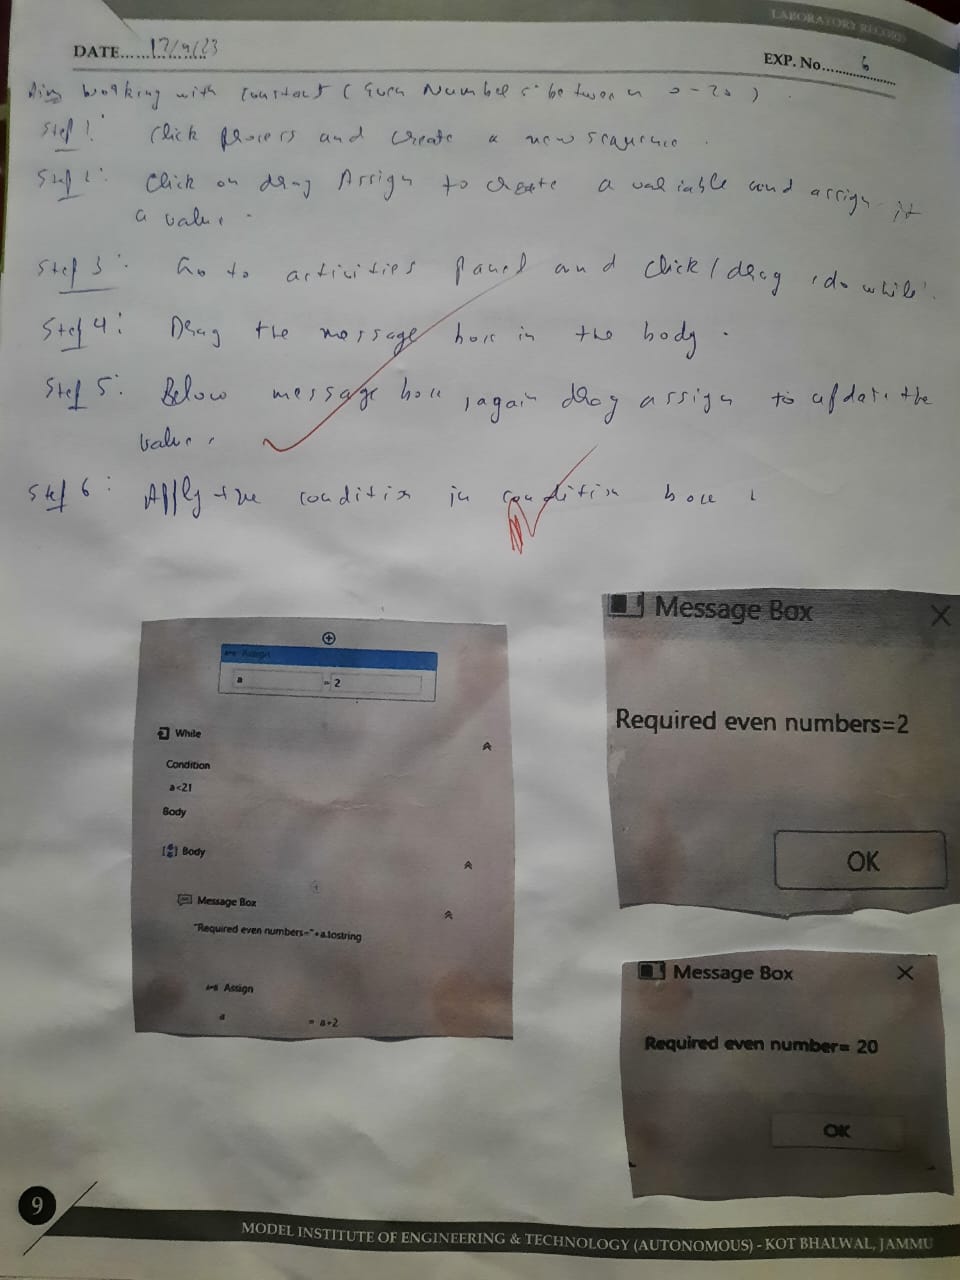 LABORATORY RECORD
DATE......12/9/23
EXP. No...... 6
Aim working with constant ( Even Numbers between 0-20 ) .
Step 1: Click process and create a new sequence .
Step 2: Click on drag Assign to create a variable and assign it
a value .
Step 3: Go to activities panel and click / drag 'do while'.
Step 4: Drag the message box in the body .
Step 5: Below message box , again drag assign to update the
value .
Step 6: Apply the condition in condition box
Assign
a = 2
While
Condition
a<21
Body
Body
Message Box
"Required even numbers="+a.tostring
Assign
a = a+2
Message Box
Required even numbers=2
OK
Message Box
Required even number= 20
OK
9
MODEL INSTITUTE OF ENGINEERING & TECHNOLOGY (AUTONOMOUS) - KOT BHALWAL, JAMMU